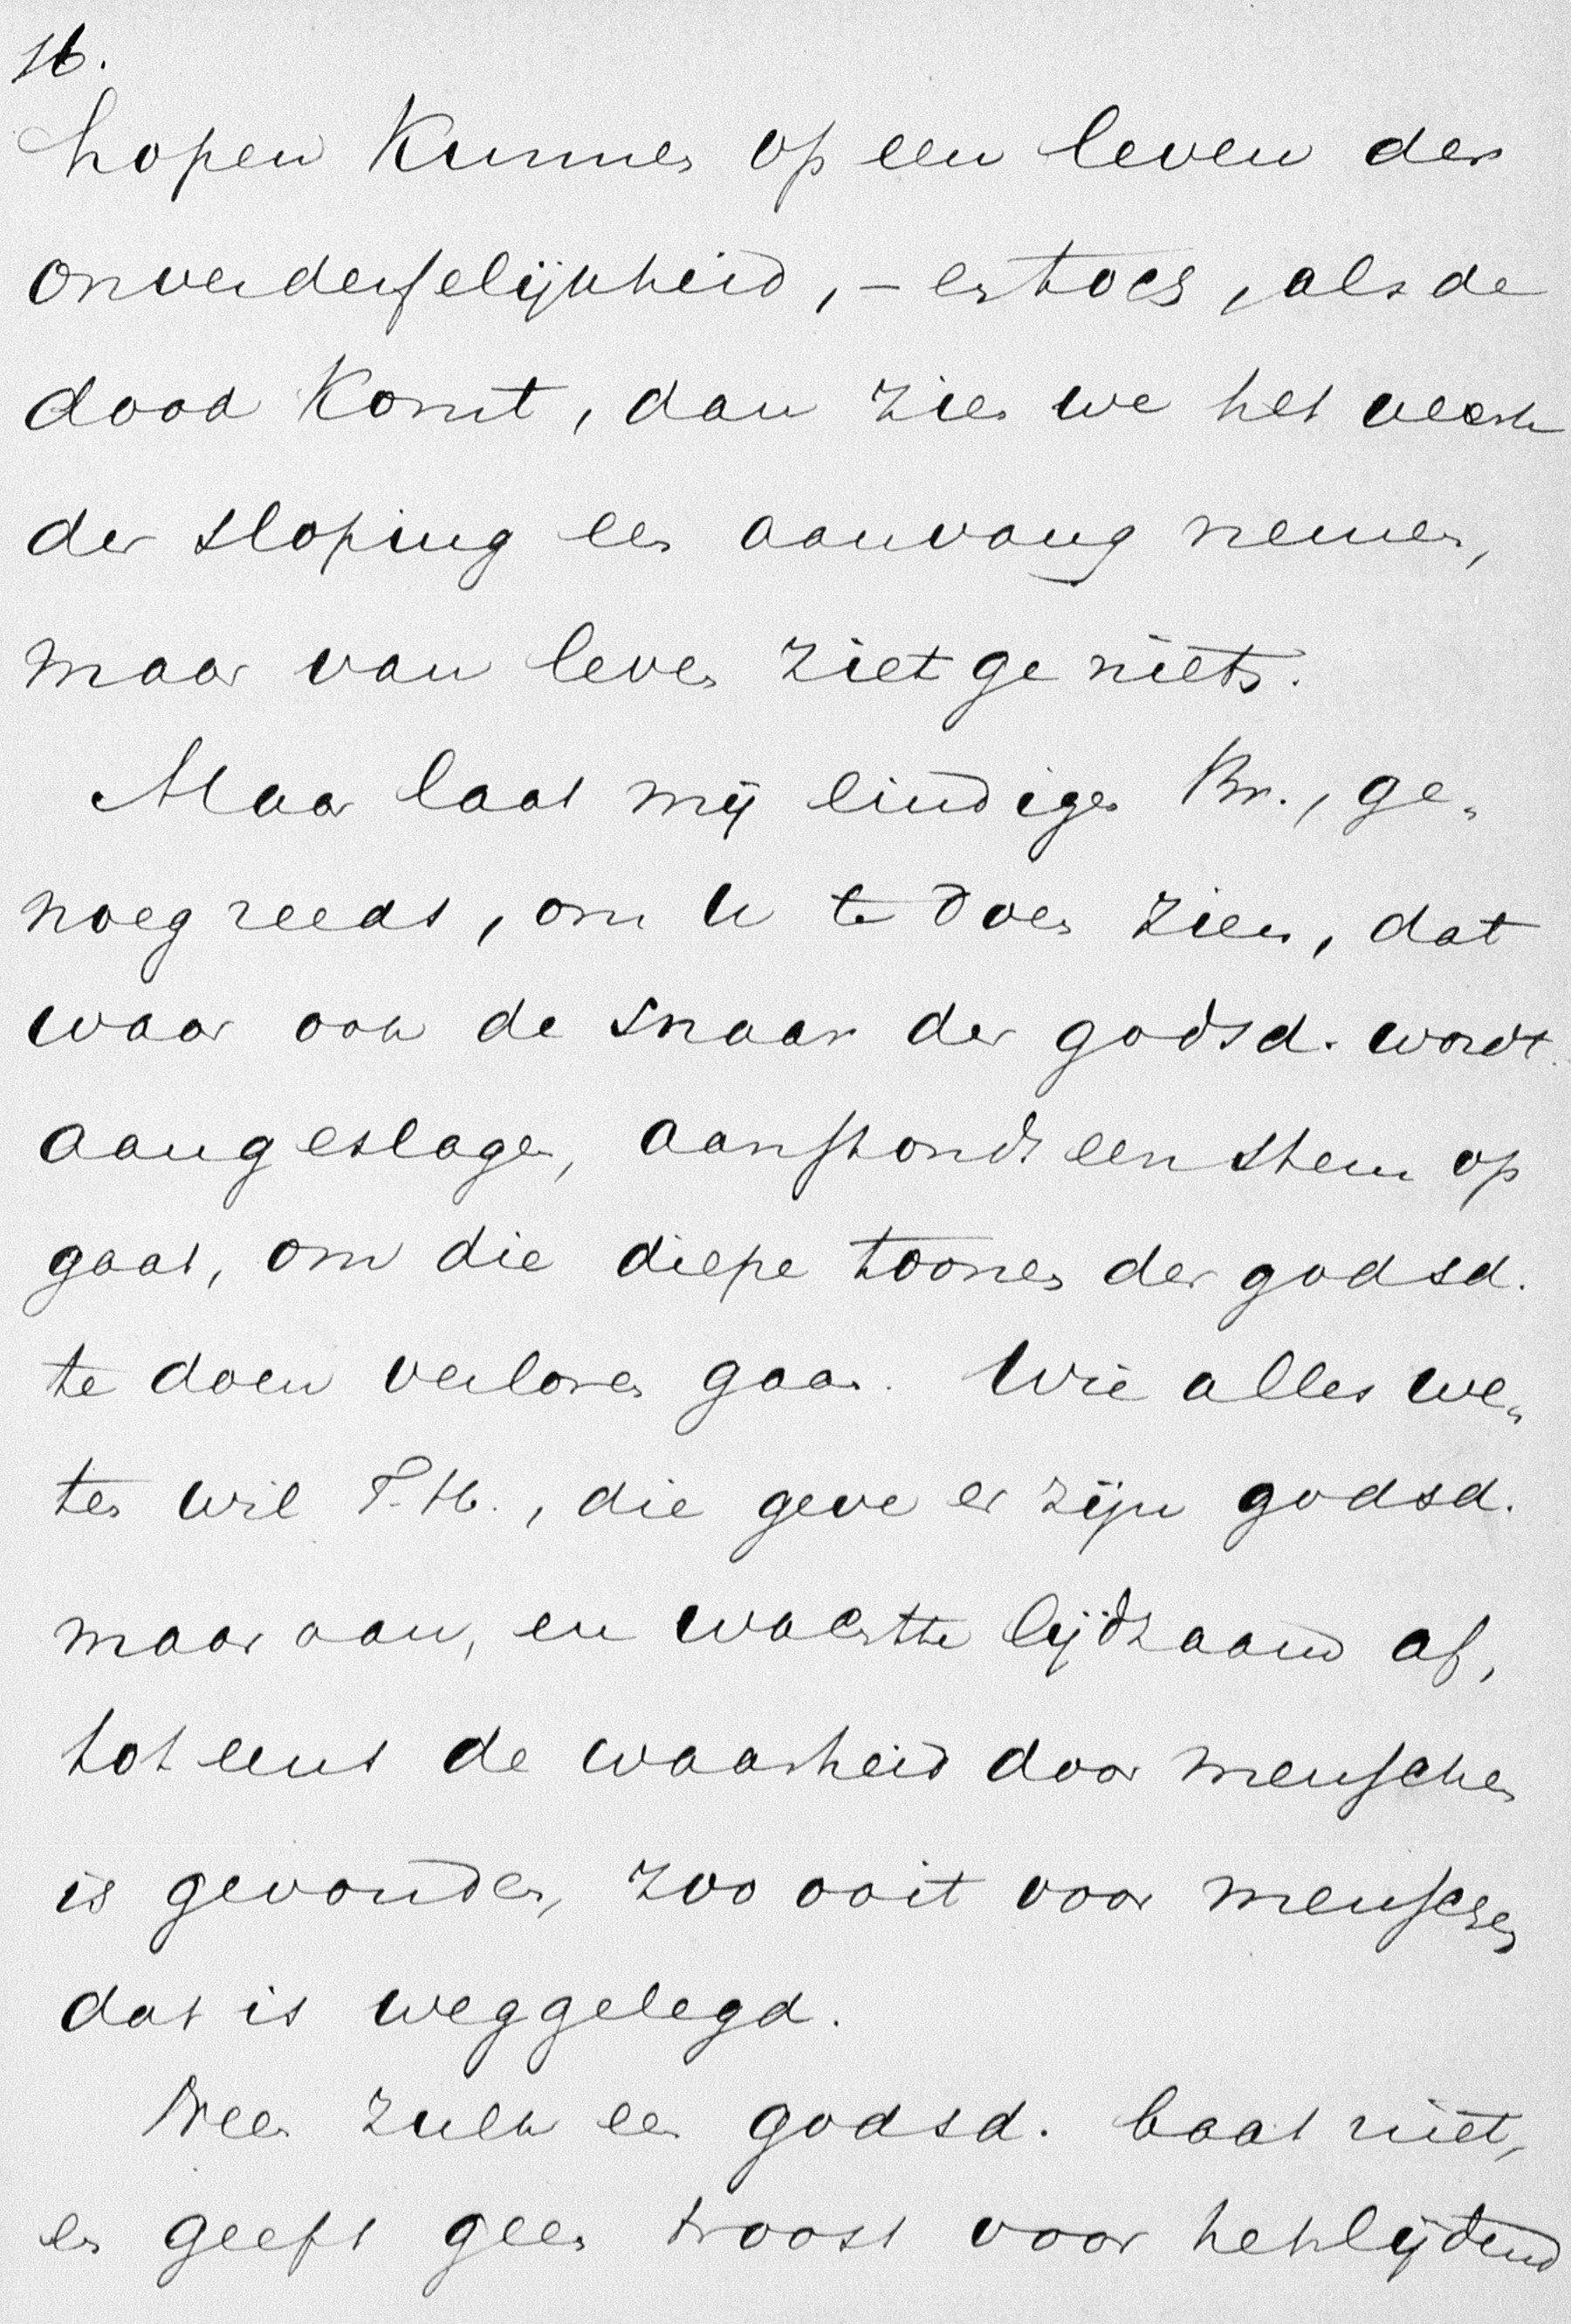 16.
hopen kunnen op een leven der
onverderfelijkheid, – en toch, als de
dood komt, dan zien we het werk
der sloping een aanvang nemen,
maar van leven ziet ge niets.
Maar laat mij eindigen Br., ge„
noeg reeds, om U te doen zien, dat
waar ook de snaar der godsd. wordt
aangeslagen, aanstonds een stem op
gaat, om die diepe toonen der godsd.
te doen verloren gaan. Wie alles we„
ten wil T. H., die geve er zijn godsd.
maar aan, en wachtte lijdzaam af,
tot eens de waarheid door menschen
is gevonden, zoo ooit voor menschen
dat is weggelegd.
Neen zulk een godsd. baat niet,
en geeft geen troost voor het lijdend